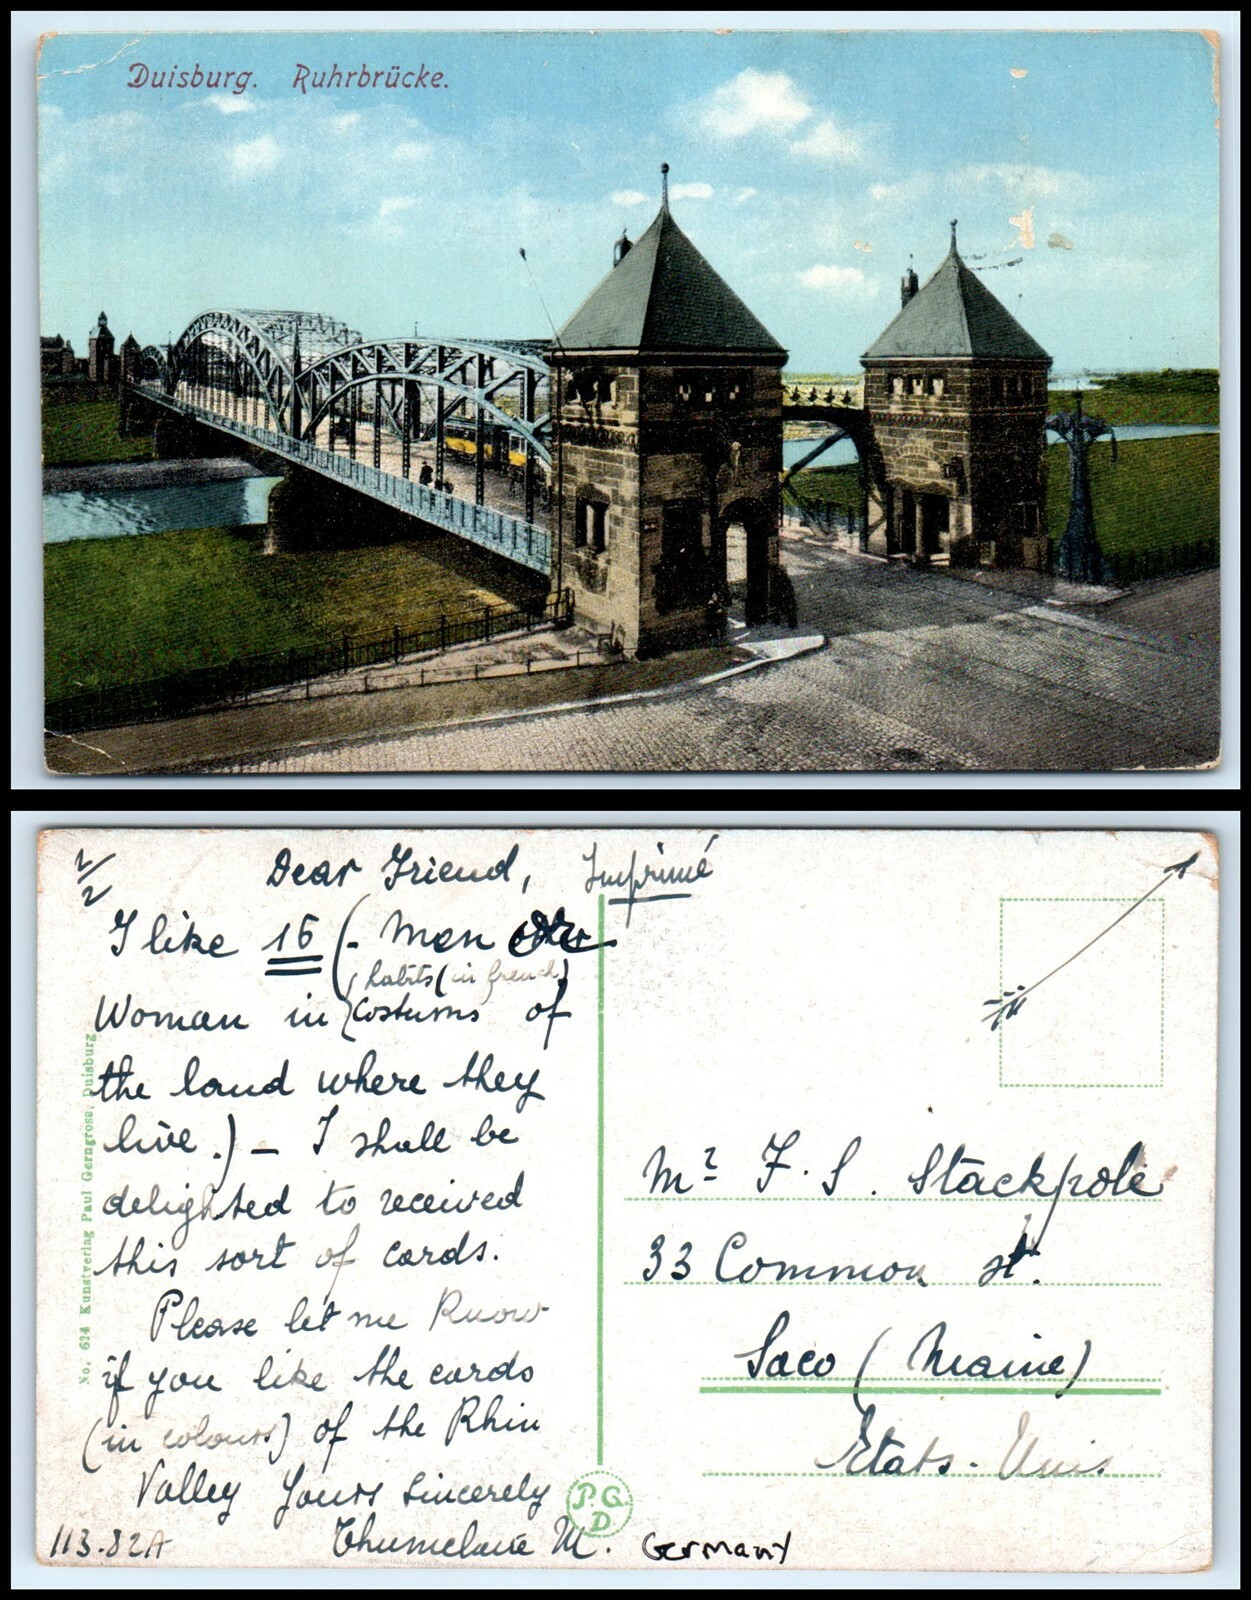 Duisburg. Ruhrbrücke.
2/2
Dear Friend,
Imprimé
I like 16 (- Men
, habits (in french)
Woman in (costums of
the land where they
live.) - I shall be
delighted to received
this sort of cards.
Please let me Know
if you like the cards
(in colours) of the Rhin
Valley Yours Sincerely
M.
113-82A
Germany
No. 624 Kunstverlag Paul Gerngross, Duisburg
P.G.
D
Mr F. S. Stackpole
33 Common st.
Saco (Maine)
Etats-Unis